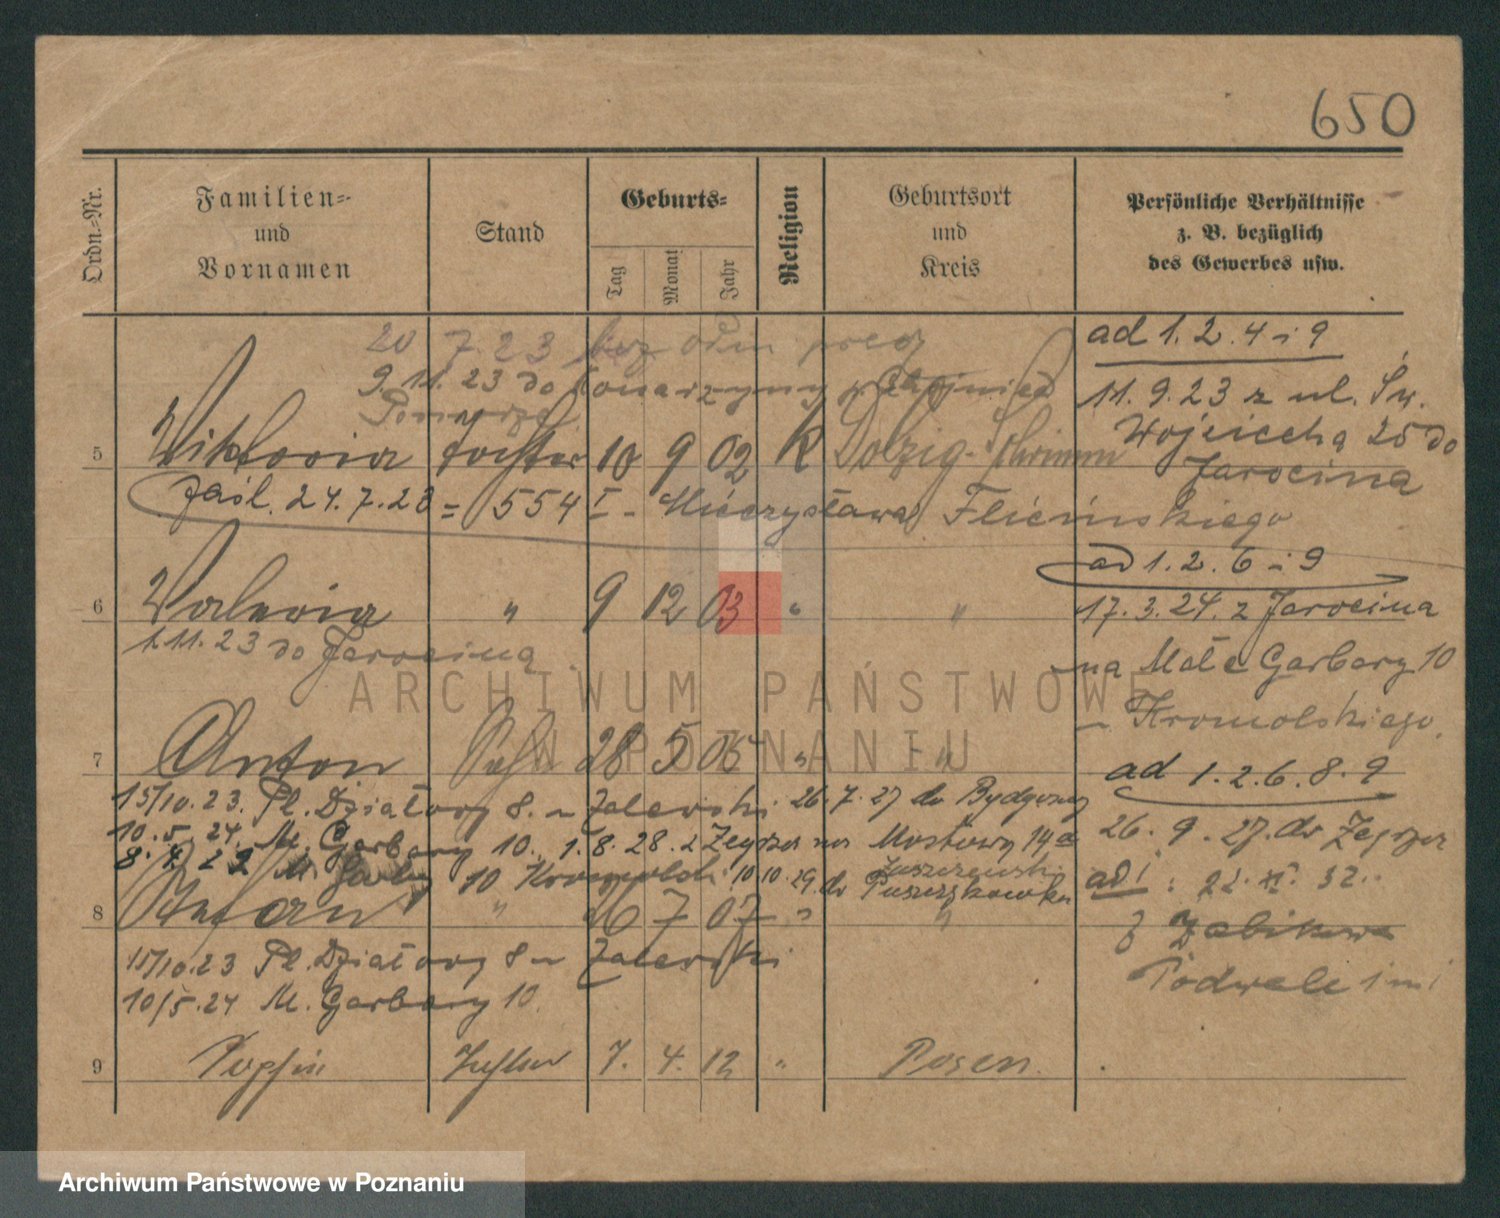 650
Ordn.-Nr.
Familien-
und
Vornamen
Stand
Geburts-
Tag
Monat
Jahr
Religion
Geburtsort
und
Kreis
Persönliche Verhältnisse
z. B. bezüglich
des Gewerbes usw.
20 7.23 bez odm
9.11.23 do Konarzyny p. Chojnice
ad 1. 2. 4 i 9
11. 9. 23 z ul. Św.
Wojciecha 25 do
Jarocina
5 Viktoria Tochter 10 9 02 K Dolzig-Schrimm
zaśl. 24.7.28 = 554 I - Mieczysława Fliemskiego
ad 1. 2. 6 i 9
17. 3. 24. z Jarocina
na Małe Garbary 10
Kromolskiego
6 Valeria " 9 12 03 " "
1.11.23 do Jarocina
7 Anton Sohn 28 5 05 " "
15/10.23. Pl. Działowy 8. Zalewski 26.7.27 do Bydgoszczy
10.5.24. M. Garbary 10. 1.8.28. z Zegrza na Mostowy 14a
M. Garbary 10 10.10.29. do Puszczykowka
ad 1. 2. 6. 8. 9
26. 9. 27. do Zegrza
ad 1
Z Żabikowa
Podwale
8 Stefan " 26 7 07 " "
15/10.23 Pl. Działowy 8 Zalewski
10/5.24 M. Garbary 10.
9 Tochter 7. 4. 12 " Posen.
ARCHIWUM PAŃSTWOWE
W POZNANIU
Archiwum Państwowe w Poznaniu